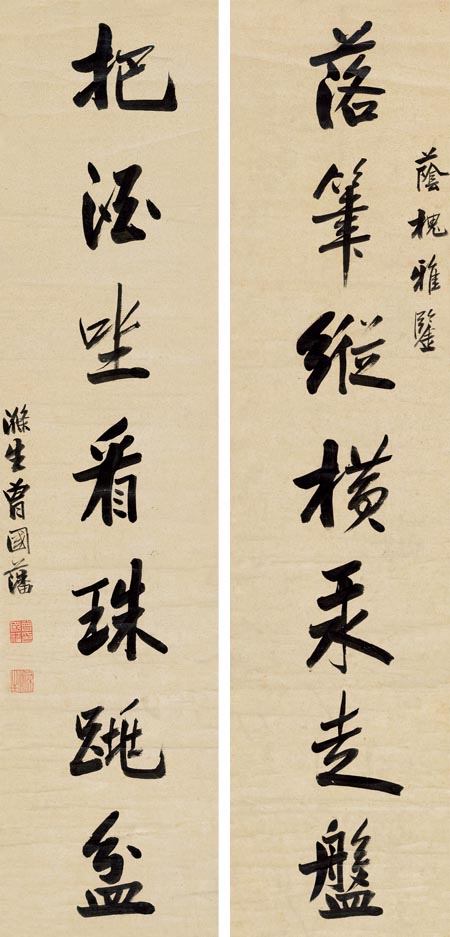 蔭槐雅鑒
落筆縱橫汞走盤
把酒坐看珠跳盆
滌生曾國藩